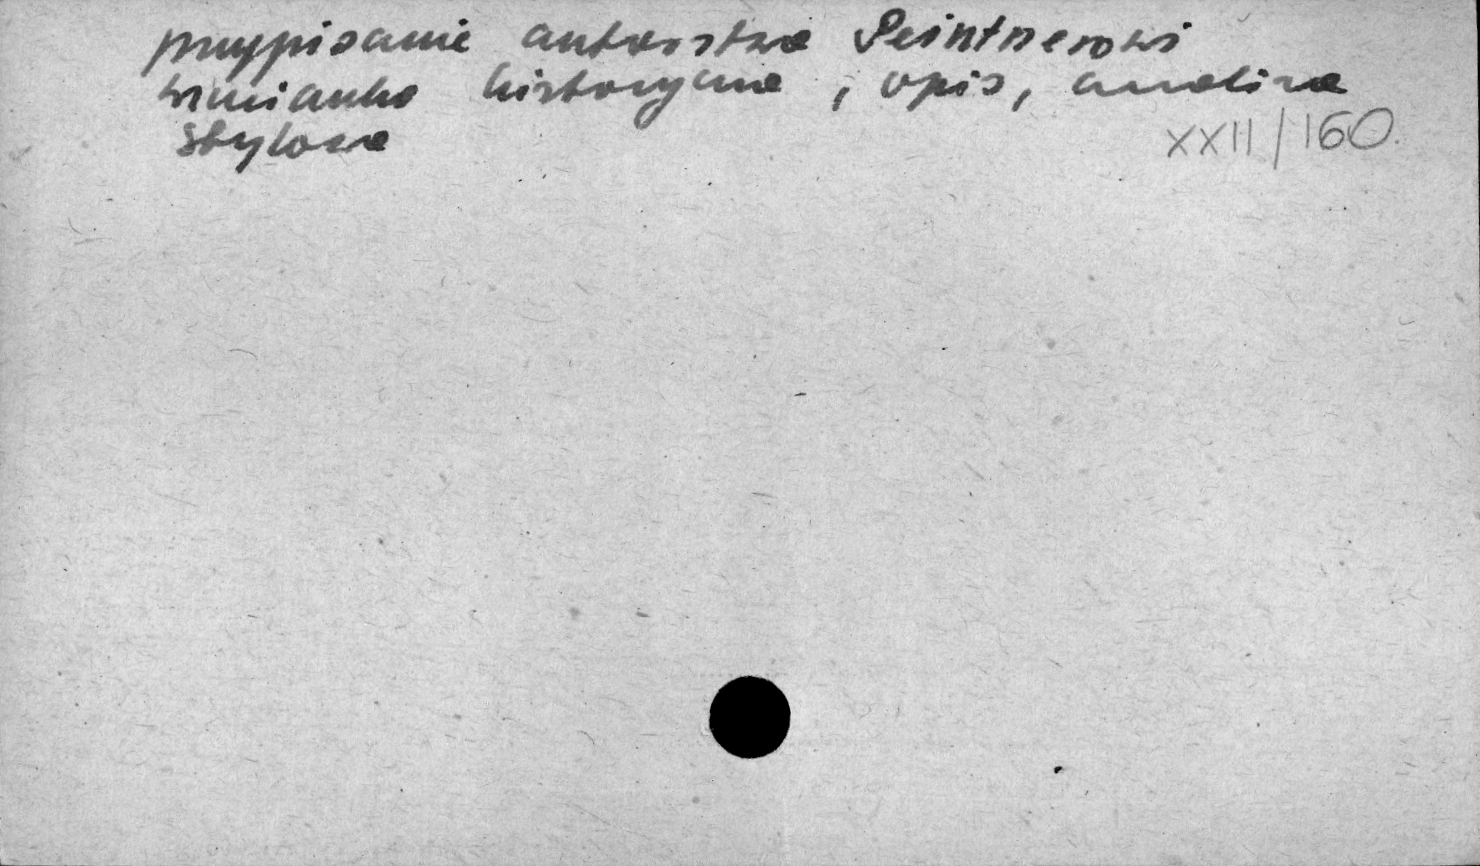 przypisanie autorstwa Peintnerowi
wzmianka historyczna, opis, analiza
stylowa
XXII/160.